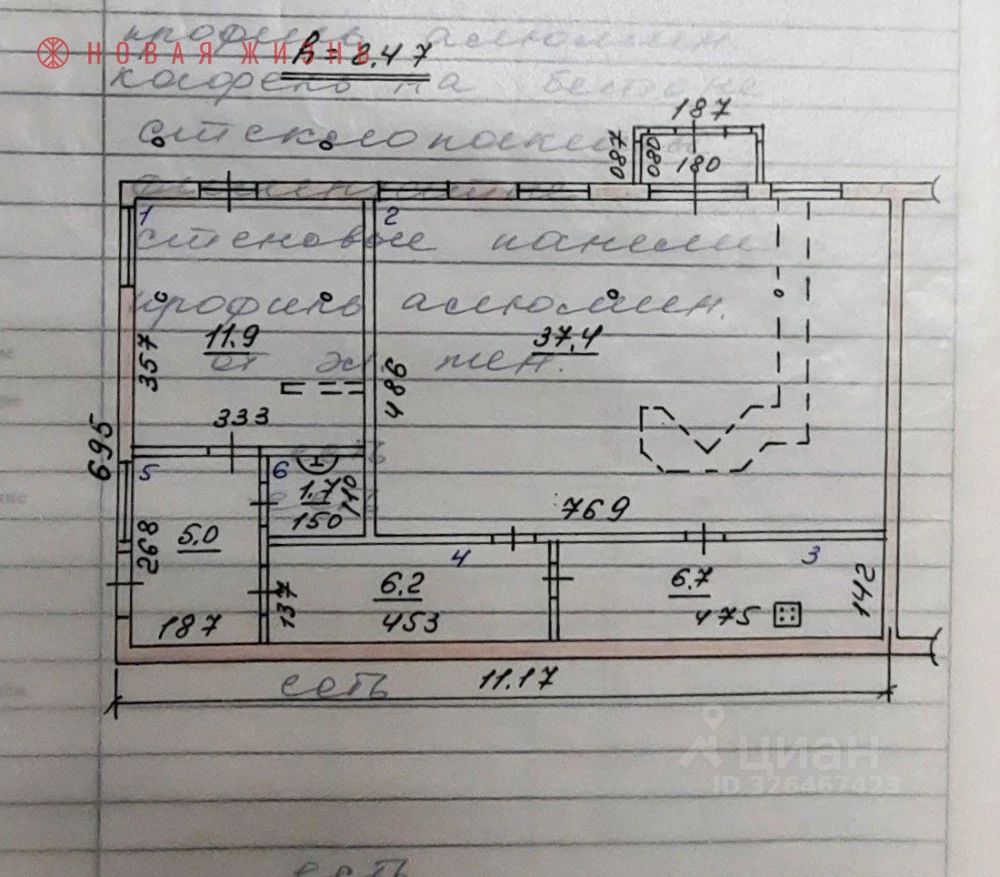 НОВАЯ ЖИЗНЬ
h = 2.47
187
087
080
180
1
2
11.9
37,4
357
486
333
695
5
6
1.7
110
150
769
268
5.0
4
3
137
6.2
453
6.7
475
142
187
11.17
есть
циан
ID 326467423
есть
профиль алюмин.
кафель на бетоне
стеклопакеты
стеновые панели
профиль алюмин.